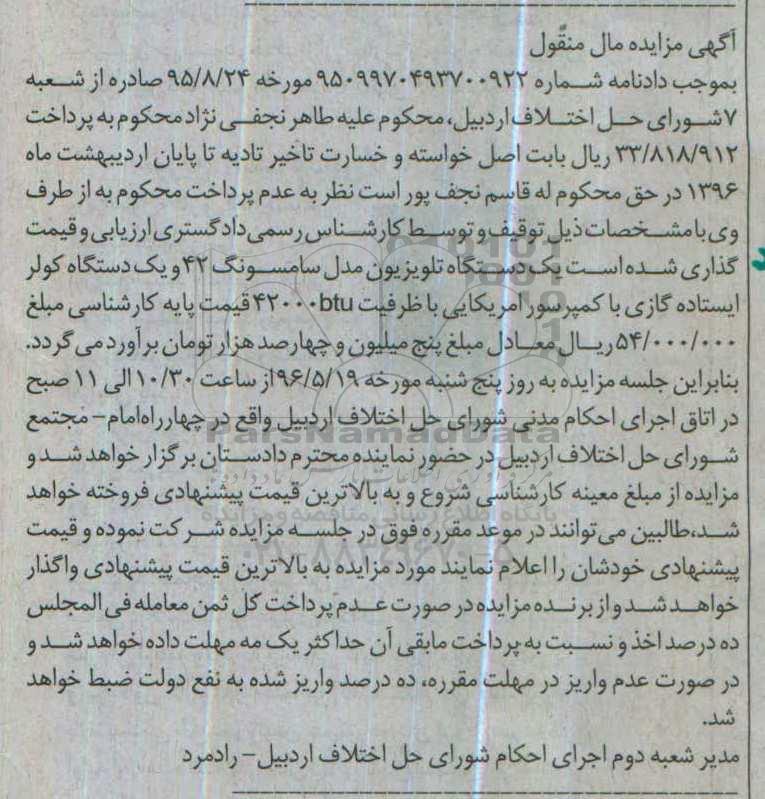 آگهی مزایده مال منقول
بموجب دادنامه شماره ۹۵۰۹۹۷۰۴۹۳۷۰۰۹۲۲ مورخه ۹۵/۸/۲۴ صادره از شعبه
۷شورای حل اختلاف اردبیل، محکوم علیه طاهر نجفی نژاد محکوم به پرداخت
۳۳/۸۱۸/۹۱۲ ریال بابت اصل خواسته و خسارت تاخیر تادیه تا پایان اردیبهشت ماه
۱۳۹۶ در حق محکوم له قاسم نجف پور است نظر به عدم پرداخت محکوم به از طرف
وی با مشخصات ذیل توقیف و توسط کارشناس رسمی دادگستری ارزیابی و قیمت
گذاری شده است یک دستگاه تلویزیون مدل سامسونگ ۴۲ و یک دستگاه کولر
ایستاده گازی با کمپرسور امریکایی با ظرفیت ۴۲۰۰۰btu قیمت پایه کارشناسی مبلغ
۵۴/۰۰۰/۰۰۰ ریال معادل مبلغ پنج میلیون و چهارصد هزار تومان برآورد می گردد.
بنابراین جلسه مزایده به روز پنج شنبه مورخه ۹۶/۵/۱۹از ساعت ۱۰/۳۰الی ۱۱ صبح
در اتاق اجرای احکام مدنی شورای حل اختلاف اردبیل واقع در چهارراه امام– مجتمع
شورای حل اختلاف اردبیل در حضور نماینده محترم دادستان برگزار خواهد شد و
مزایده از مبلغ معینه کارشناسی شروع و به بالاترین قیمت پیشنهادی فروخته خواهد
شد،طالبین می توانند در موعد مقرره فوق در جلسه مزایده شرکت نموده و قیمت
پیشنهادی خودشان را اعلام نمایند مورد مزایده به بالاترین قیمت پیشنهادی واگذار
خواهد شد و از برنده مزایده در صورت عدم پرداخت کل ثمن معامله فی المجلس
ده درصد اخذ و نسبت به پرداخت مابقی آن حداکثر یک مه مهلت داده خواهد شد و
در صورت عدم واریز در مهلت مقرره، ده درصد واریز شده به نفع دولت ضبط خواهد
شد.
مدیر شعبه دوم اجرای احکام شورای حل اختلاف اردبیل– رادمرد
ParsNamadData